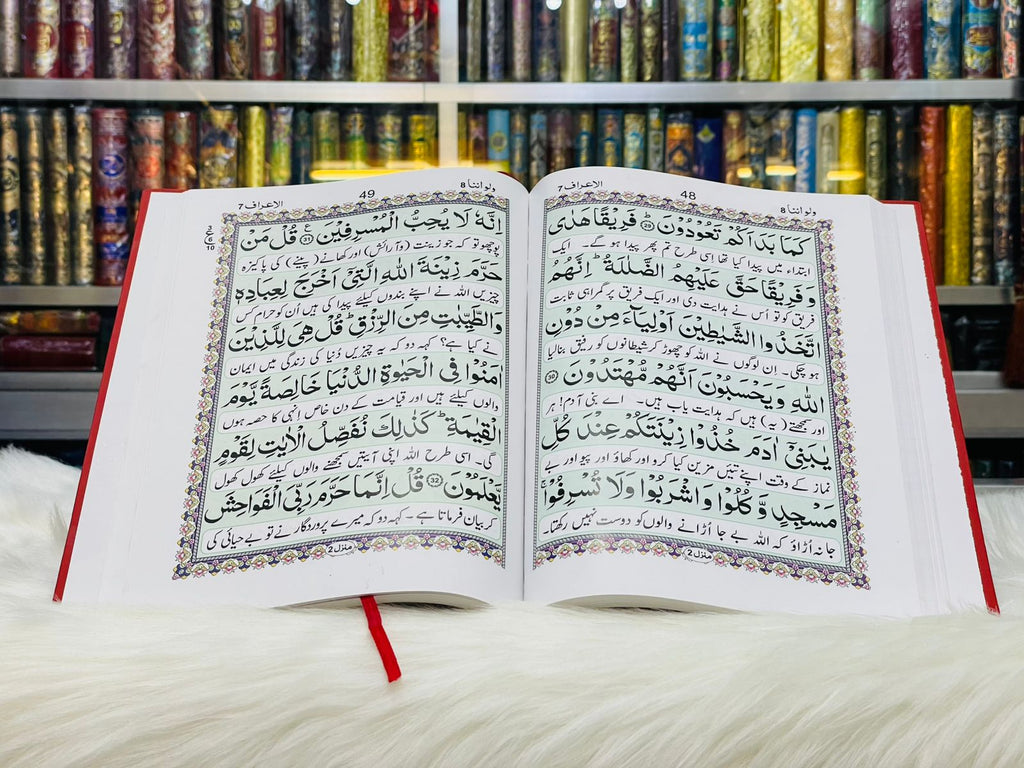 ولو اننا 8
48
الاعراف 7
كَمَا بَدَاَكُمْ تَعُوْدُوْنَ ﴿29﴾ فَرِيْقًا هَدٰى
ابتداء میں پیدا کیا تھا اسی طرح تم پھر پیدا ہو گے۔ ایک
وَ فَرِيْقًا حَقَّ عَلَيْهِمُ الضَّلٰلَةُ ؕ اِنَّهُمُ
فریق کو تو اُس نے ہدایت دی اور ایک فریق پر گمراہی ثابت
اتَّخَذُوا الشَّيٰطِيْنَ اَوْلِيَآءَ مِنْ دُوْنِ
ہو چکی۔ اِن لوگوں نے اللہ کو چھوڑ کر شیطانوں کو رفیق بنالیا
اللّٰهِ وَ يَحْسَبُوْنَ اَنَّهُمْ مُّهْتَدُوْنَ ﴿30﴾
اور سمجھتے (یہ) ہیں کہ ہدایت یاب ہیں۔ اے بنی آدم! ہر
يٰبَنِيْۤ اٰدَمَ خُذُوْا زِيْنَتَكُمْ عِنْدَ كُلِّ
نماز کے وقت اپنے تئیں مزین کیا کرو اور کھاؤ اور پیو اور بے
مَسْجِدٍ وَّ كُلُوْا وَ اشْرَبُوْا وَلَا تُسْرِفُوْا ۚ
جا نہ اُڑاؤ کہ اللہ بے جا اُڑانے والوں کو دوست نہیں رکھتا
منزل 2
ولو اننا 8
49
الاعراف 7
اِنَّهٗ لَا يُحِبُّ الْمُسْرِفِيْنَ ﴿31﴾ ع قُلْ مَنْ
پوچھو تو کہ جو زینت (وآرائش) اور کھانے (پینے) کی پاکیزہ
حَرَّمَ زِيْنَةَ اللّٰهِ الَّتِيْۤ اَخْرَجَ لِعِبَادِهٖ
چیزیں اللہ نے اپنے بندوں کیلئے پیدا کی ہیں اُن کو حرام کس
وَالطَّيِّبٰتِ مِنَ الرِّزْقِ ؕ قُلْ هِيَ لِلَّذِيْنَ
نے کیا ہے؟ کہہ دو کہ یہ چیزیں دُنیا کی زندگی میں ایمان
اٰمَنُوْا فِي الْحَيٰوةِ الدُّنْيَا خَالِصَةً يَّوْمَ
والوں کیلئے ہیں اور قیامت کے دن خاص اِنہی کا حصہ ہوں
الْقِيٰمَةِ ؕ كَذٰلِكَ نُفَصِّلُ الْاٰيٰتِ لِقَوْمٍ
گی۔ اسی طرح اللہ اپنی آیتیں سمجھنے والوں کیلئے کھول کھول
يَّعْلَمُوْنَ ﴿32﴾ قُلْ اِنَّمَا حَرَّمَ رَبِّيَ الْفَوَاحِشَ
کر بیان فرماتا ہے۔ کہہ دو کہ میرے پروردگار نے تو بے حیائی کی
منزل 2